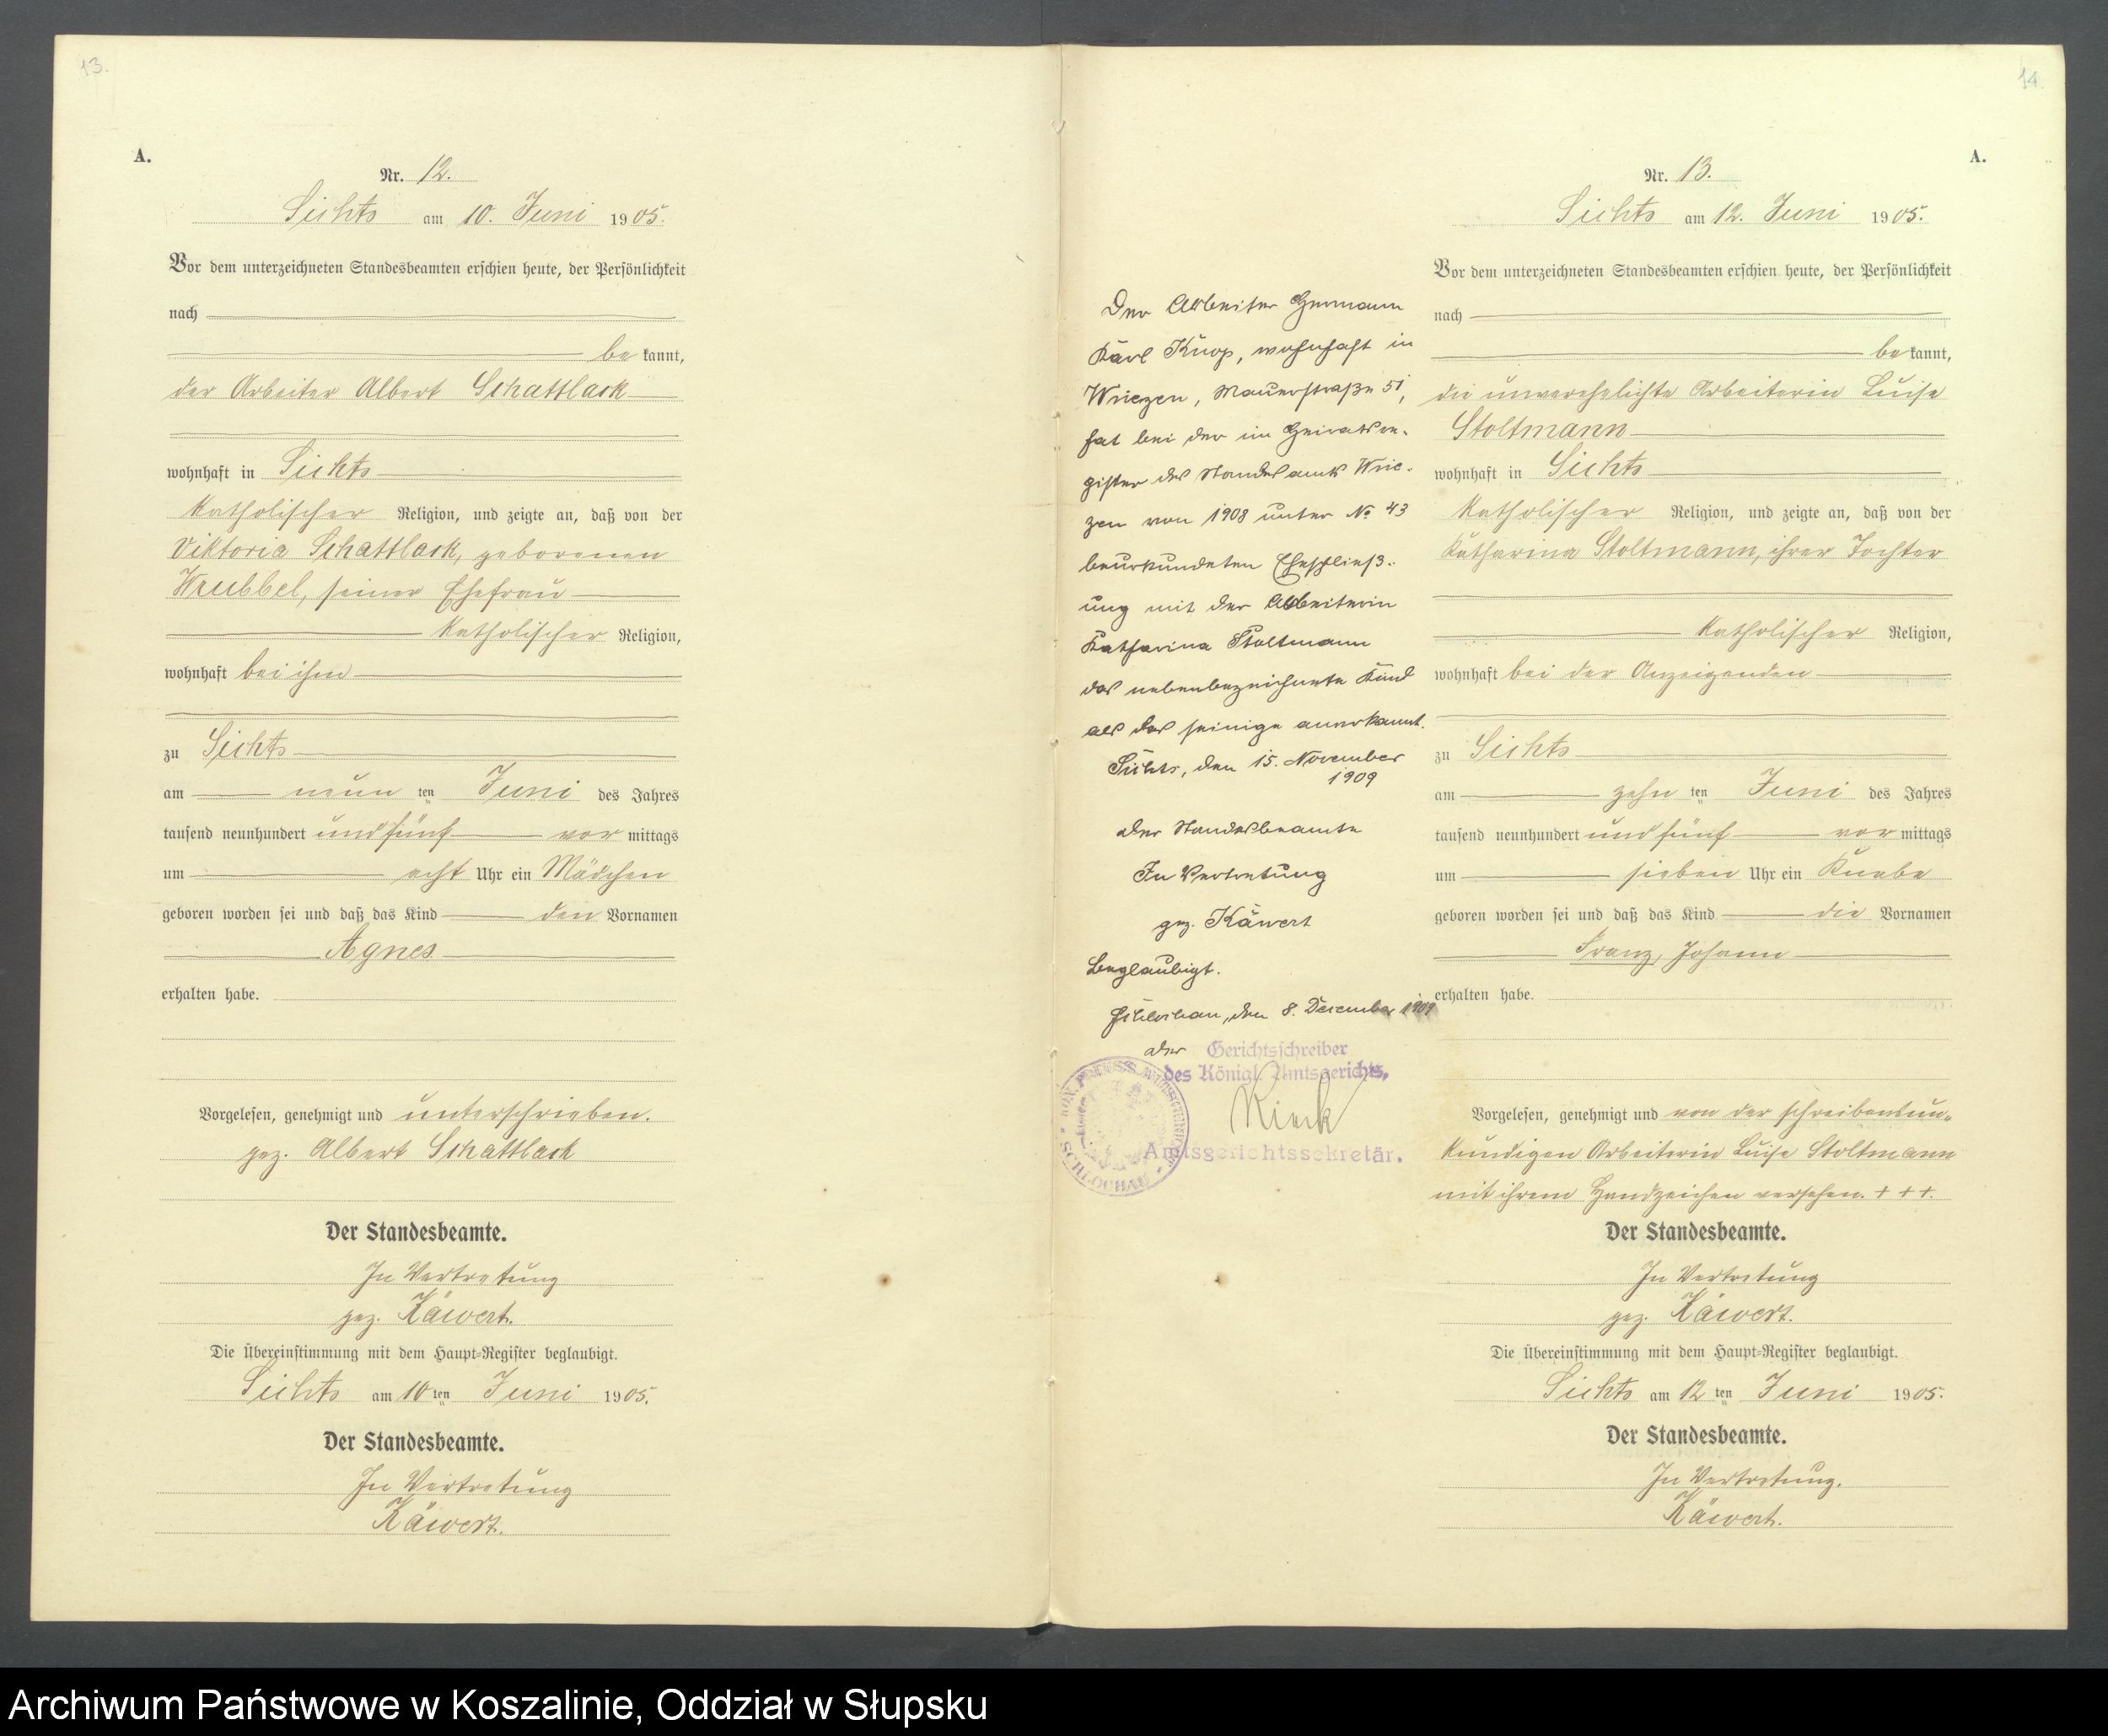 13.
A.
Nr. 12.
Sichts am 10. Juni 1905.
Vor dem unterzeichneten Standesbeamten erschien heute, der Persönlichkeit
nach
be kannt,
der Arbeiter Albert Schattlack
wohnhaft in Sichts
katholischer Religion, und zeigte an, daß von der
Viktoria Schattlack, geborenen
Wrubbel, seiner Ehefrau
katholischer Religion,
wohnhaft bei ihm
zu Sichts
am neun ten Juni des Jahres
tausend neunhundert und fünf vor mittags
um acht Uhr ein Mädchen
geboren worden sei und daß das Kind den Vornamen
Agnes
erhalten habe.
Vorgelesen, genehmigt und unterschrieben.
gez. Albert Schattlack
Der Standesbeamte.
In Vertretung
gez. Käwert.
Die Übereinstimmung mit dem Haupt-Register beglaubigt.
Sichts am 10 ten Juni 1905.
Der Standesbeamte.
In Vertretung
Käwert.
14.
A.
Nr. 13.
Sichts am 12. Juni 1905.
Vor dem unterzeichneten Standesbeamten erschien heute, der Persönlichkeit
nach
be kannt,
die unverehelichte Arbeiterin Luise
Stoltmann
wohnhaft in Sichts
katholischer Religion, und zeigte an, daß von der
Katharina Stoltmann, ihrer Tochter
katholischer Religion,
wohnhaft bei der Anzeigenden
zu Sichts
am zehn ten Juni des Jahres
tausend neunhundert und fünf vor mittags
um sieben Uhr ein Knabe
geboren worden sei und daß das Kind die Vornamen
Franz, Johann
erhalten habe.
Vorgelesen, genehmigt und von der schreibensun-
kundigen Arbeiterin Luise Stoltmann
mit ihrem Handzeichen versehen. + + +.
Der Standesbeamte.
In Vertretung
gez. Käwert.
Die Übereinstimmung mit dem Haupt-Register beglaubigt.
Sichts am 12 ten Juni 1905.
Der Standesbeamte.
In Vertretung.
Käwert.
Der Arbeiter Hermann
Karl Knop, wohnhaft in
Wriezen, Mauerstraße 51,
hat bei der im Heiratsre-
gister des Standesamts Wrie-
zen von 1908 unter No 43
beurkundeten Eheschließ-
ung mit der Arbeiterin
Katharina Stoltmann
das nebenbezeichnete Kind
als das seinige anerkannt.
Sichts, den 15. November
1909
Der Standesbeamte
In Vertretung
gez. Käwert
Beglaubigt.
Schlochau, den 8. Dezember 1909
Der Gerichtsschreiber
des Königl. Amtsgerichts.
Rieck
Amtsgerichtssekretär.
SCHLOCHAU
Archiwum Państwowe w Koszalinie, Oddział w Słupsku